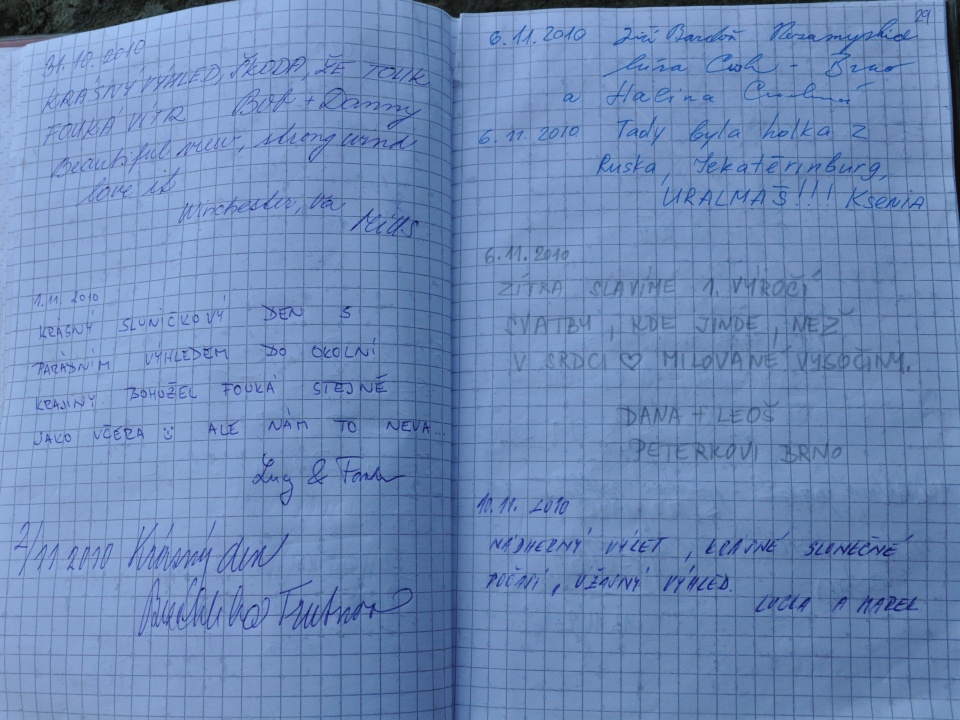 31.10.2010
KRÁSNÝ VÝHLED, ŠKODA, ŽE TOLIK
FOUKÁ VÍTR Bob + Danny
Beautiful view, strong wind
love it
Winchester, Va
Mills
1.11. 2010
KRÁSNÝ SLUNÍČKOVÝ DEN S
PARÁDNÍM VÝHLEDEM DO OKOLNÍ
KRAJINY. BOHUŽEL FOUKÁ STEJNĚ
JAKO VČERA ALE NÁM TO NEVA...
Lucy &
2/11 2010 Krásný den
29
6.11.2010 Jiří
- Brno
a Halina
6.11.2010 Tady byla holka z
Ruska, Jekatěrinburg,
URALMAŠ!!! Ksenia
6.11.2010
ZÍTRA SLAVÍME 1. VÝROČÍ
SVATBY, KDE JINDE, NEŽ
V SRDCI ♡ MILOVANÉ VYSOČINY.
DANA + LEOŠ
PETERKOVI BRNO
10.11. 2010
NÁDHERNÝ VÝLET, KRÁSNÉ SLUNEČNÉ
POČASÍ, ÚŽASNÝ VÝHLED.
LUCKA A MAREK